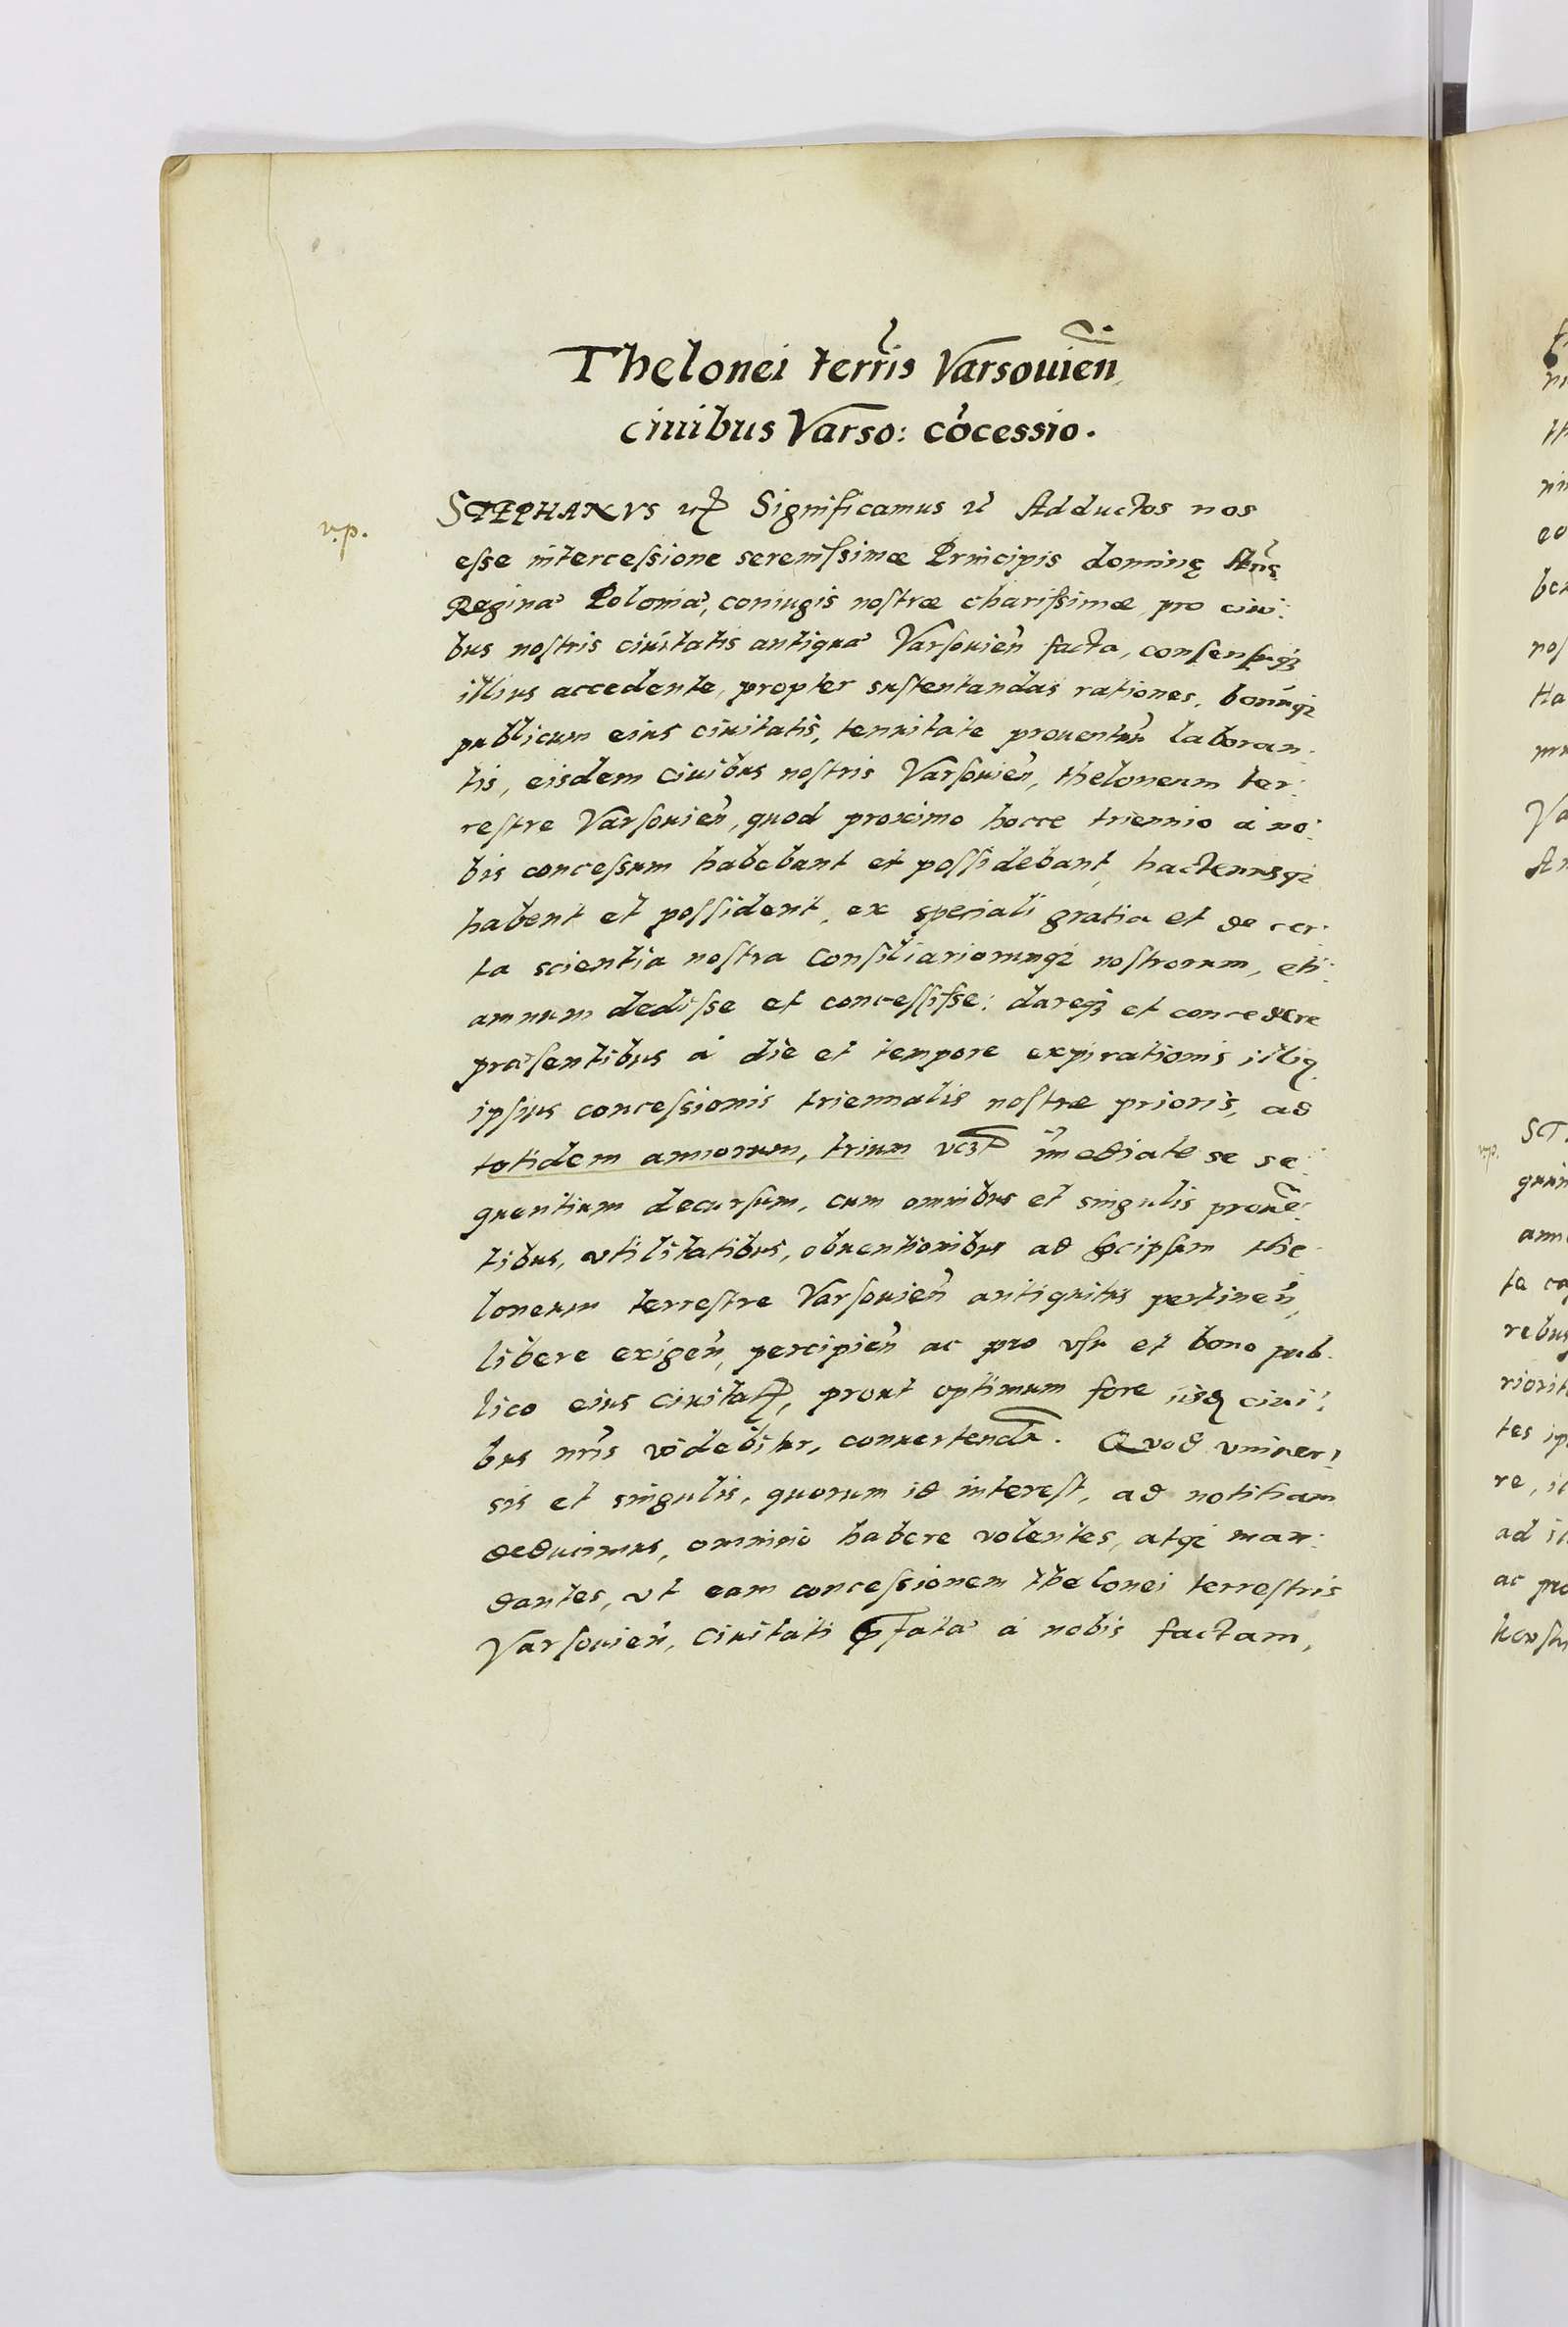 Thelonei terr̃is Varsouień
ciuibus Varso: cõcessio.
v.p.
STEPHANVS Significamus Adductos nos
eſse interceſsione sereniſsimæ Principis dominę Annę
Reginæ Poloniæ, coniugis noſtræ chariſsimæ pro ciui:
bus noſtris ciuitatis antiquæ Varſouień facta, conſenſuqꝫ
illius accedente, propter suſtentandas rationes, bonumqꝫ
publicum eius ciuitatis, tenuitate prouentuũ laboran:
tis, eisdem ciuibus noſtris Varſouień, theloneum ter:
reſtre Varſouień, quod proximo hocce triennio á no:
bis conceſsum habebant et poſſidebant, hactenusqꝫ
habent et poſſident, ex speciali gratia et de cer:
ta scientia noſtra Conſiliariorumqꝫ noſtrorum, eti:
amnum dediſse et conceſſiſse: dareqꝫ et concedere
præſentibus á die et tempore expirationis illiꝰ
ipſius conceſsionis triennalis noſtræ prioris, ad
totidem annorum, trium vcꝫt im̃ediate se se:
quentium decurſum, cum omnibus et singulis prouẽ:
tibus, vtilitatibus, obuentionibus ad hocipſum the:
loneum terreſtre Varſouień antiquitus pertineń,
libere exigeń, percipień ac pro vſu et bono pub:
lico eius ciuitatꝭ, prout optimum fore iisdẽ ciui:
bus nr̃is videbitur, conuertendã. Quod vniuer:
sis et singulis, quorum id intereſt, ad notitiam
deducimus, omnino habere volentes, atqꝫ man:
dantes, vt eam conceſsionem thelonei terreſtris
Varſouień, ciuitati p̃fatæ á nobis factam,